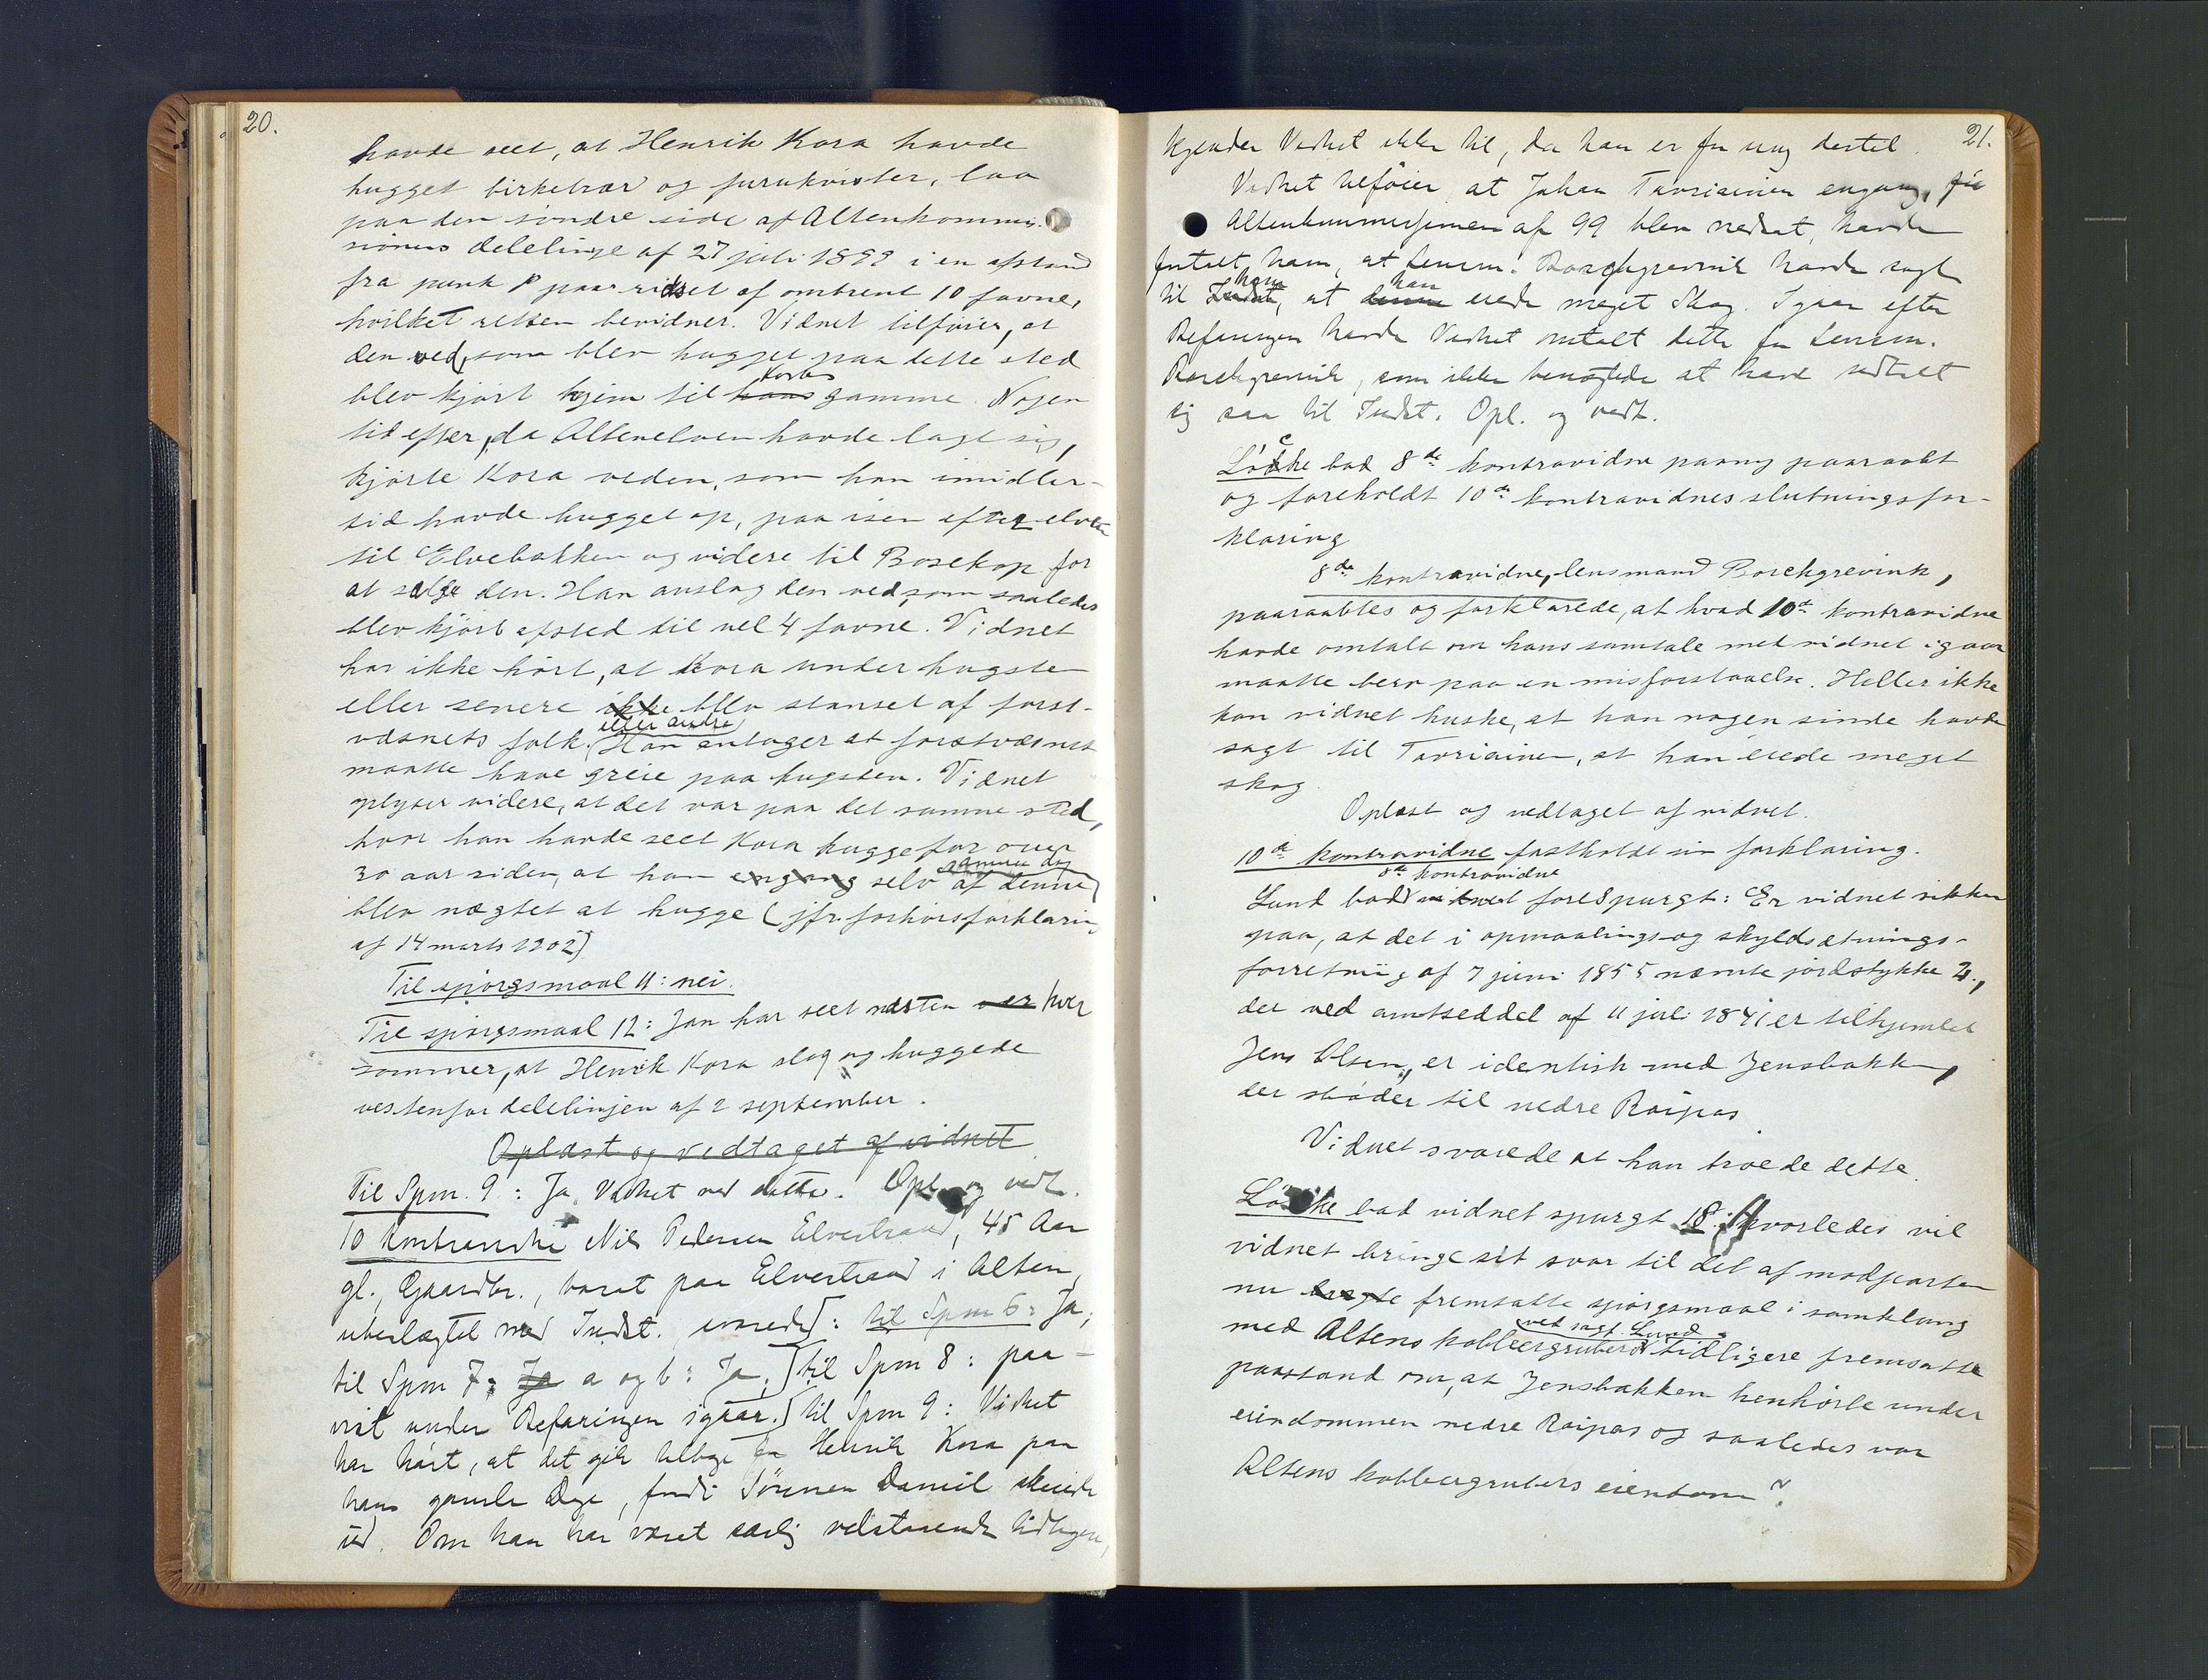 20.
havde seet, at Henrik Kora havde
hugget birketrær og furukvister, laa
paa den søndre side af Altenkommis-
sionens delelinje af 27 juli 1899 i en afstand
fra punk P paa ridset af omtrent 10 favne,
hvilket retten bevidner. Vidnet tilføier, at
den ved, som blev hugget paa dette sted
blev kjørt hjem til hans Koras gamme. Nogen
tid efter, da Altenelven havde lagt sig,
kjørte Kora veden, som han imidler-
tid havde hugget op, paa isen efter elven
til Elvebakken og videre til Bosekop for
at sælge den. Han anslog den ved, som saaledes
blev kjørt afsted til vel 4 favne. Vidnet
har ikke hørt, at Kora under hugsten
eller senere ikke blev stanset af forst-
væsnets folk. eller andre (Han antager at forstvæsnet
maatte have greie paa hugsten. Vidnet
oplyser videre, at det var paa det samme sted,
hvor han havde seet Kora hugge for over
30 aar siden, at han engang selv samme dag af denne
blev nægtet at hugge (jfr. forhørsforklaring
af 14 marts 1902)
Til spørgsmaal 11: nei.
Til spørgsmaal 12: Jan har seet næsten hver
sommer, at Henrik Kora slog og huggede
vestenfor delelinjen af 2 september.
Oplæst og vedtaget af vidnet
Til Spm. 9: Ja, Vidnet ved dette. Opl. og vedt.
10 Kontravidne Nils Pedersen Elvestrand, 45 Aar
gl., Gaardbr., boret paa Elvestrand i Alten,
ubeslægtet med Indst. svarede: til Spm 6: Ja;
til Spm 7: Ja a og b: Ja; til Spm 8: paa-
vist under Befaringen igaar. til Spm 9: Vidnet
har hørt, at det gik tilbage for Henrik Kora paa
hans gamle Dage, fordi Sønnen Daniel
ud. Om han har været særlig velstaaende tidligere,
21.
kjender Vidnet ikke til, da han er for ung dertil.
Vidnet tilføier at Johan Tavriainen engang, før
Altenkommissionen af 99 blev nedsat, havde
fortalt ham, at Lensm. Borchgrevink havde sagt
til ham, at denne han eiede meget Skog. Igaar efter
Befaringen havde Vidnet omtalt dette for Lensm.
Borchgrevink, som ikke benægtede at have udtalt
sig saa til Indst. Opl. og vedt.
Løcke bad 8de kontravidne paany paaraabt
og foreholdt 10de kontravidnes slutningsfor-
klaring
8de kontravidne, lensmand Borchgrevink,
paaraabtes og forklarede, at hvad 10de kontravidne
havde omtalt om hans samtale med vidnet igaar
maatte bero paa en misforstaaelse. Heller ikke
kan vidnet huske, at han nogen sinde havde
sagt til Tavriainen, at han eiede meget
skog.
Oplæst og vedtaget af vidnet.
10de kontravidne fastholdt sin forklaring.
Lund bad vidnet 8de kontravidne forespurgt: Er vidnet sikker
paa, at det i opmaalings- og skyldsætnings-
forretning af 7 juni 1855 nævnte jordstykke 2.,
der ved amtseddel af 11 juli 1841 er tilhjemlet
Jens Olsen, er identisk med Jensbakken,
der støder til nedre Raipas
Vidnet svarede at han troede dette.
Løcke bad vidnet spurgt 18: hvorledes vil
vidnet bringe sit svar til det af modparten
nu fremsatte spørgsmaal i samklang
med Altens kobbergrubers ved sagf. Lund tidligere fremsatte
paastand om, at Jensbakken henhørte under
eiendommen nedre Raipas og saaledes var
Altens kobbergrubers eiendom?